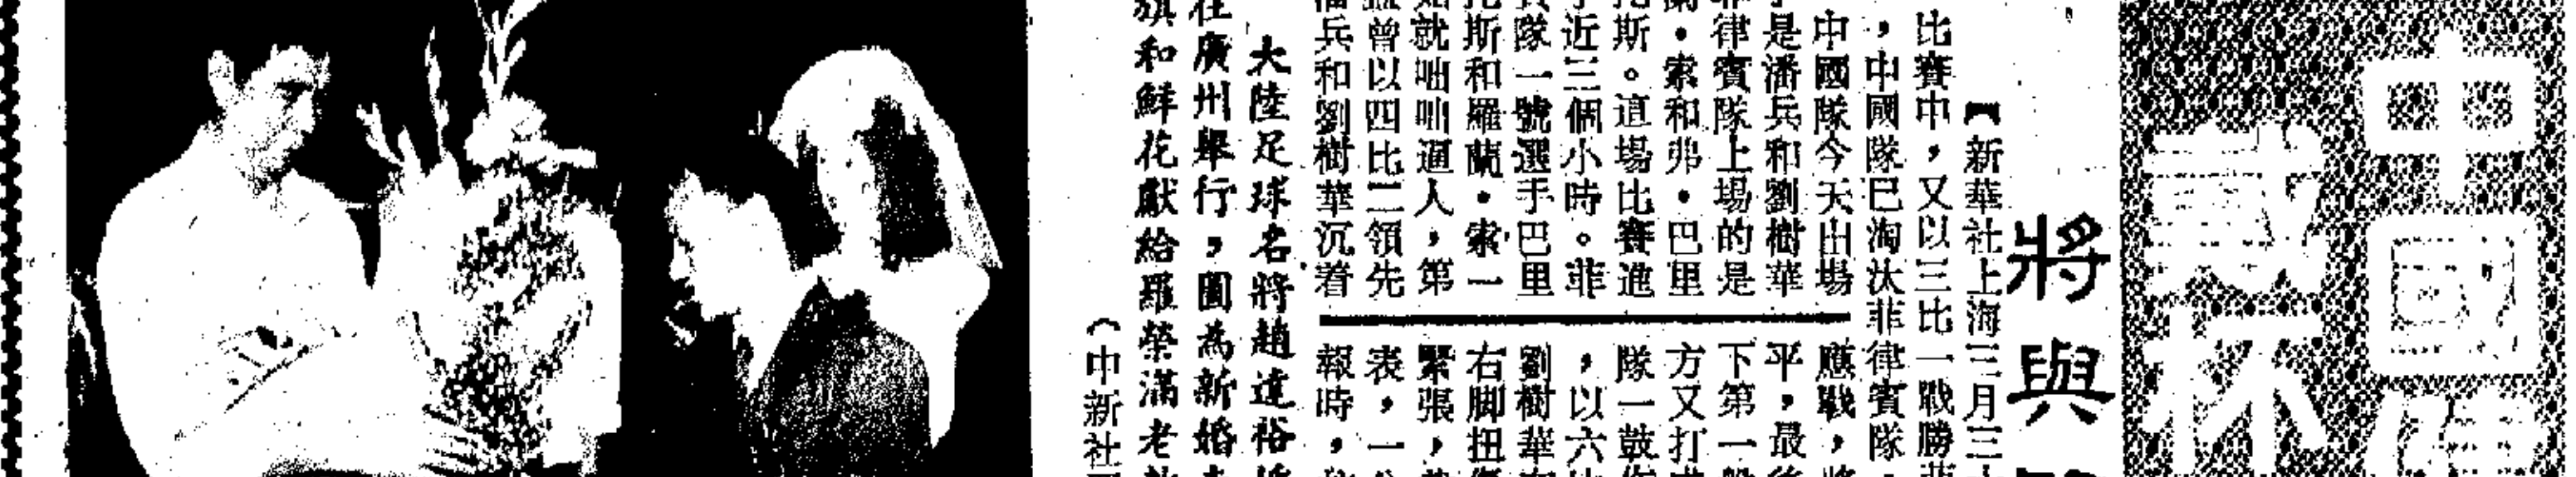 中國
戴杯
將與
【新華社上海三月三
比賽中，又以三比一戰勝菲
，中國隊已淘汰菲律賓隊，
中國隊今天出場
是潘兵和劉樹華
律賓隊上場的是
蘭・索和弗・巴里
托斯。道場比賽進
近三個小時。菲
賓隊一號選手巴里
托斯和羅蘭・索一
始就咄咄逼人，第
盤曾以四比二領先
潘兵和劉樹華沉着
應戰，將
平，最後
下第一盤
方又打
隊一鼓作
，以六比
劉樹華
右脚扭傷
緊張，
表，一
報時，
大陸足球名將趙達裕
在廣州舉行，圖為新婚夫
旗和鮮花獻給羅榮滿老
（中新社